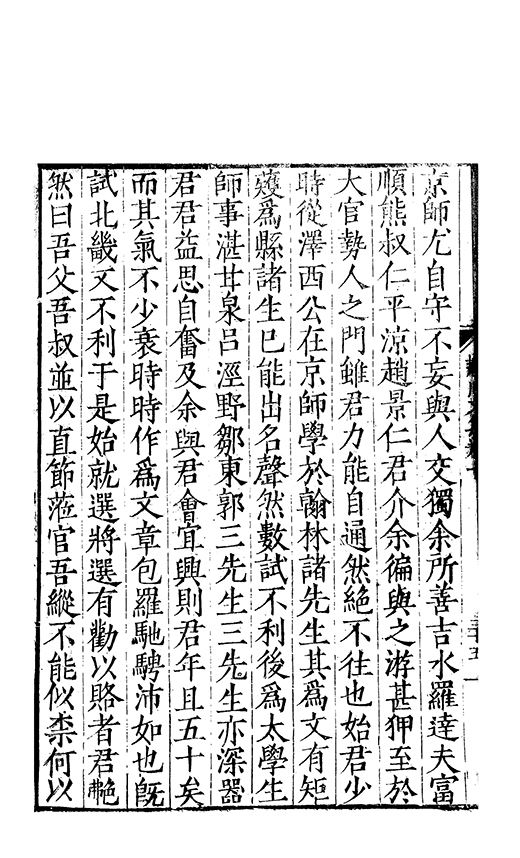 京師尤自守不妄與人交獨余所善吉水羅達夫富
順熊叔仁平涼趙景仁君介余徧與之游甚狎至於
大官勢人之門雖君力能自通然絕不往也始君少
時從澤西公在京師學於翰林諸先生其為文有矩
矱為縣諸生已能出名聲然數試不利後為太學生
師事湛甘泉呂涇野鄒東郭三先生三先生亦深器
君君益思自奮及余與君會宜興則君年且五十矣
而其氣不少衰時時作為文章包羅馳騁沛如也既
試北畿又不利于是始就選將選有勸以賂者君艴
然曰吾父吾叔並以直節蒞官吾縱不能似柰何以